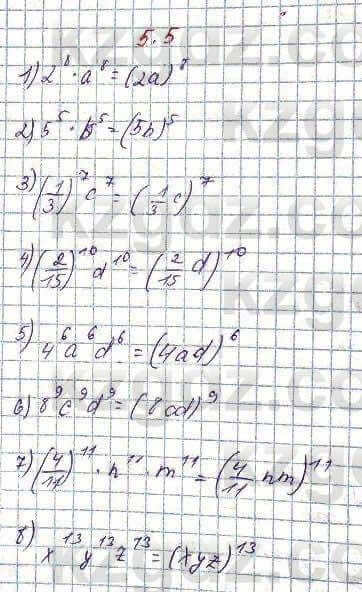 5.5
1) 2⁸ · a⁸ = (2a)⁸
2) 5⁵ · b⁵ = (5b)⁵
3) (1/3)⁷ c⁷ = (1/3 c)⁷
4) (2/15)¹⁰ d¹⁰ = (2/15 d)¹⁰
5) 4⁶ a⁶ d⁶ = (4ad)⁶
6) 8⁹ c⁹ d⁹ = (8cd)⁹
7) (4/11)¹¹ · n¹¹ · m¹¹ = (4/11 nm)¹¹
8) x¹³ y¹³ z¹³ = (xyz)¹³